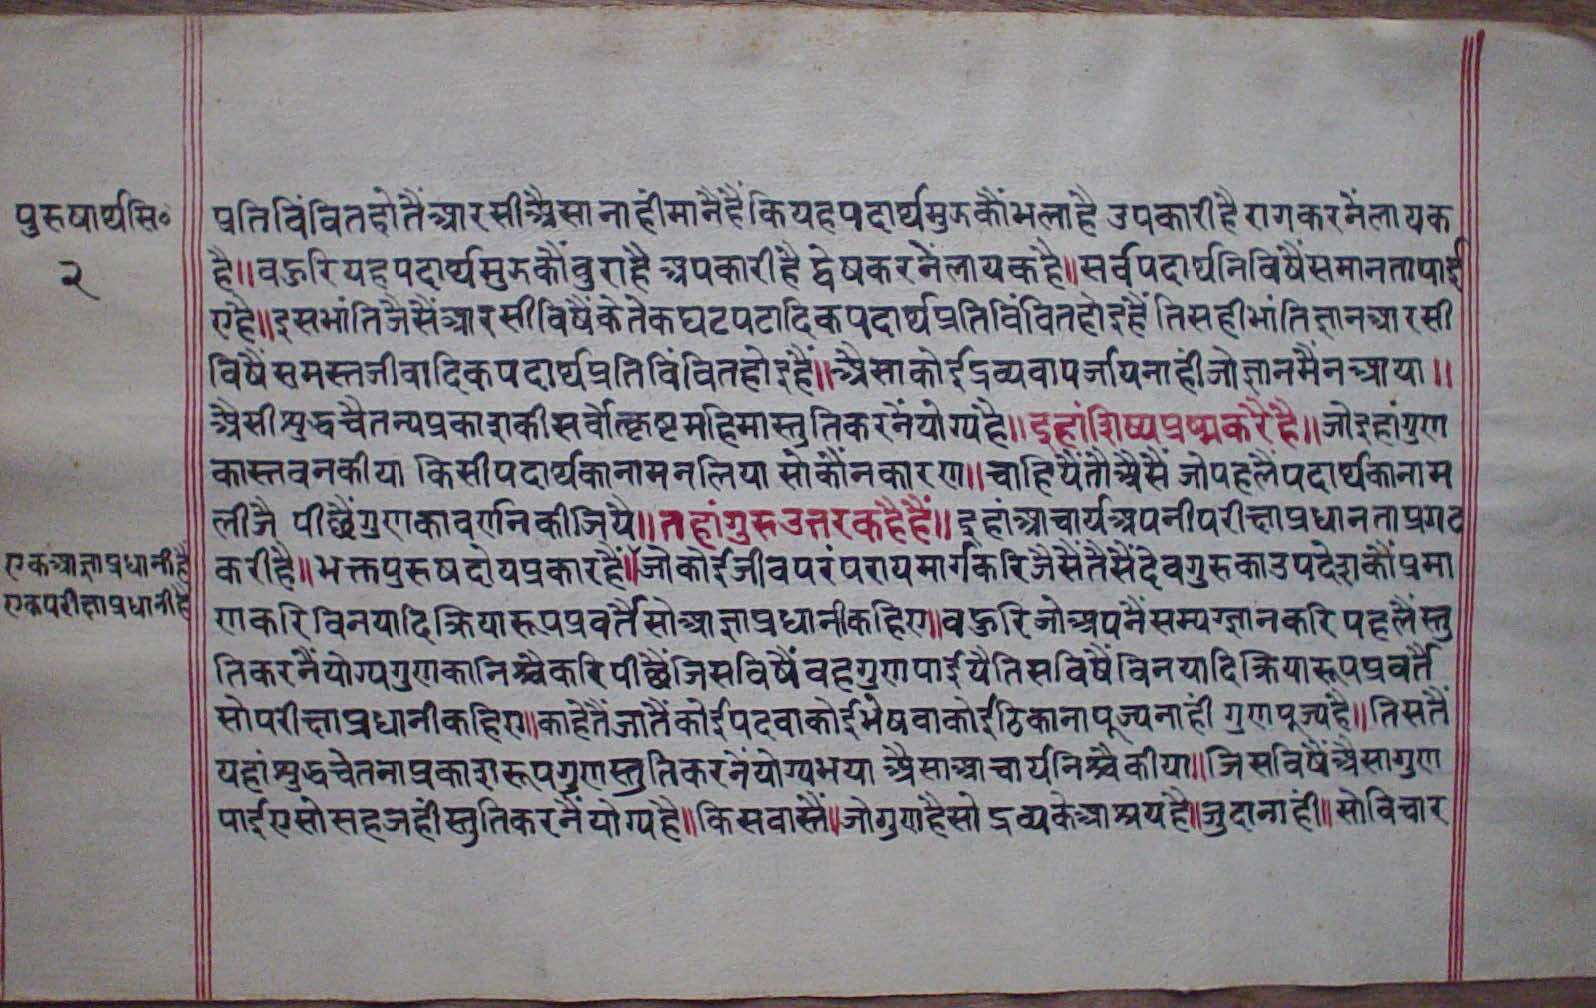 पुरुषार्थसि॰
२
प्रतिविंवितहोतैंआरसीअैसानाहींमानैंहैंकियहपदार्थमुझकौंभलाहै उपकारीहै रागकरनेंलायक
है॥वहुरियहपदार्थमुझकौंवुराहै अपकारीहै द्वेषकरनेंलायकहै॥सर्वपदार्थनिविषैंसमानतापाई
एहै॥इसभांतिजैसैंआरसीविषैंकेतेकघटपटादिकपदार्थप्रतिविंवितहोइहैं तिसहीभांतिज्ञानआरसी
विषैंसमस्तजीवादिकपदार्थप्रतिविंवितहोइहैं॥अैसाकोईद्रव्यवापर्जायनाहींजोज्ञानमैंनआया॥
अैसीशुद्धचैतन्यप्रकाशकीसर्वोत्कृष्टमहिमास्तुतिकरनेंयोग्यहै॥इहांशिष्यप्रष्णकरैहै॥जोइहांगुण
कास्तवनकीया किसीपदार्थकानामनलिया सोकौंनकारण॥चाहियैंतौअैसैं जोपहलैंपदार्थकानाम
लीजै पीछैंगुणकावर्णनकीजियै॥तहांगुरुउत्तरकहैहैं॥इहांआचार्यअपनीपरीक्षाप्रधानताप्रगट
एकआज्ञाप्रधानीहै
करीहै॥भक्तपुरुषदोयप्रकारहैं॥जोकोईजीवपरंपरायमार्गकरिजैसैंतैसैंदेवगुरुकाउपदेशकौंप्रमा
एकपरीक्षाप्रधानीहै
णकरिविनयादिक्रियारूपप्रवर्तैसोआज्ञाप्रधानीकहिए॥वहुरिजोअपनैंसम्यग्ज्ञानकरिपहलैंस्तु
तिकरनैंयोग्यगुणकानिश्चैकरिपीछैंजिसविषैंवहगुणपाईयैतिसविषैंविनयादिक्रियारूपप्रवर्तै
सोपरीक्षाप्रधानीकहिए॥काहेतैंजातैंकोईपदवाकोईभेषवाकोईठिकानापूज्यनाहीं गुणपूज्यहै॥तिसतैं
यहांशुद्धचेतनाप्रकाशरूपगुणस्तुतिकरनेंयोग्यभया अैसाआचार्यनिश्चैकीया॥जिसविषैंअैसागुण
पाईएसोसहजहींस्तुतिकरनैंयोग्यहै॥किसवास्तैं॥जोगुणहैसो द्रव्यकेआश्रयहै॥जुदानाहीं॥सोविचार